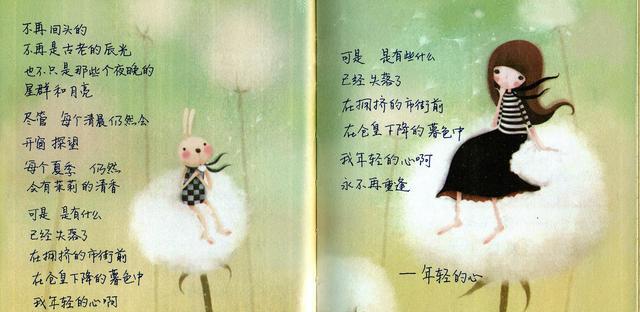 不再回头的
不再是古老的辰光
也不只是那些个夜晚的
星群和月亮
尽管 每个清晨仍然会
开窗 探望
每个夏季 仍然
会有茉莉的清香
可是 是有些什么
已经失落了
在拥挤的市街前
在仓皇下降的暮色中
我年轻的心啊
可是 是有些什么
已经失落了
在拥挤的市街前
在仓皇下降的暮色中
我年轻的心啊
永不再重逢
—年轻的心